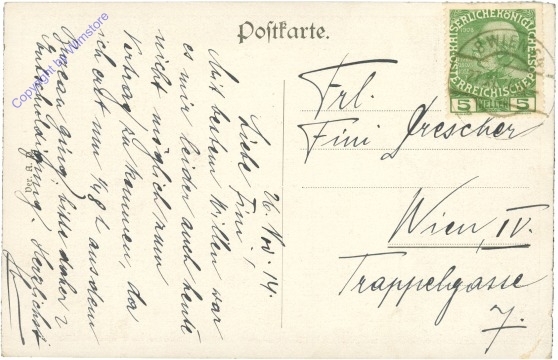 Postkarte.
26. Nov. 14.
Liebe Fini!
Mit bestem Willen war
es mir leider auch heute
nicht möglich zum
Vortrag zu kommen, da
ich erst um ¼ 8 h aus dem
Bureau ging; bitte daher
Entschuldigung! Herzlichst
Frl.
Fini Drescher
Wien, IV.
Trappelgasse
7.
KAISERLICHE KÖNIGLICHE
ÖSTERREICHISCHE POST
5 5
WIEN
Copyright by Wmstore